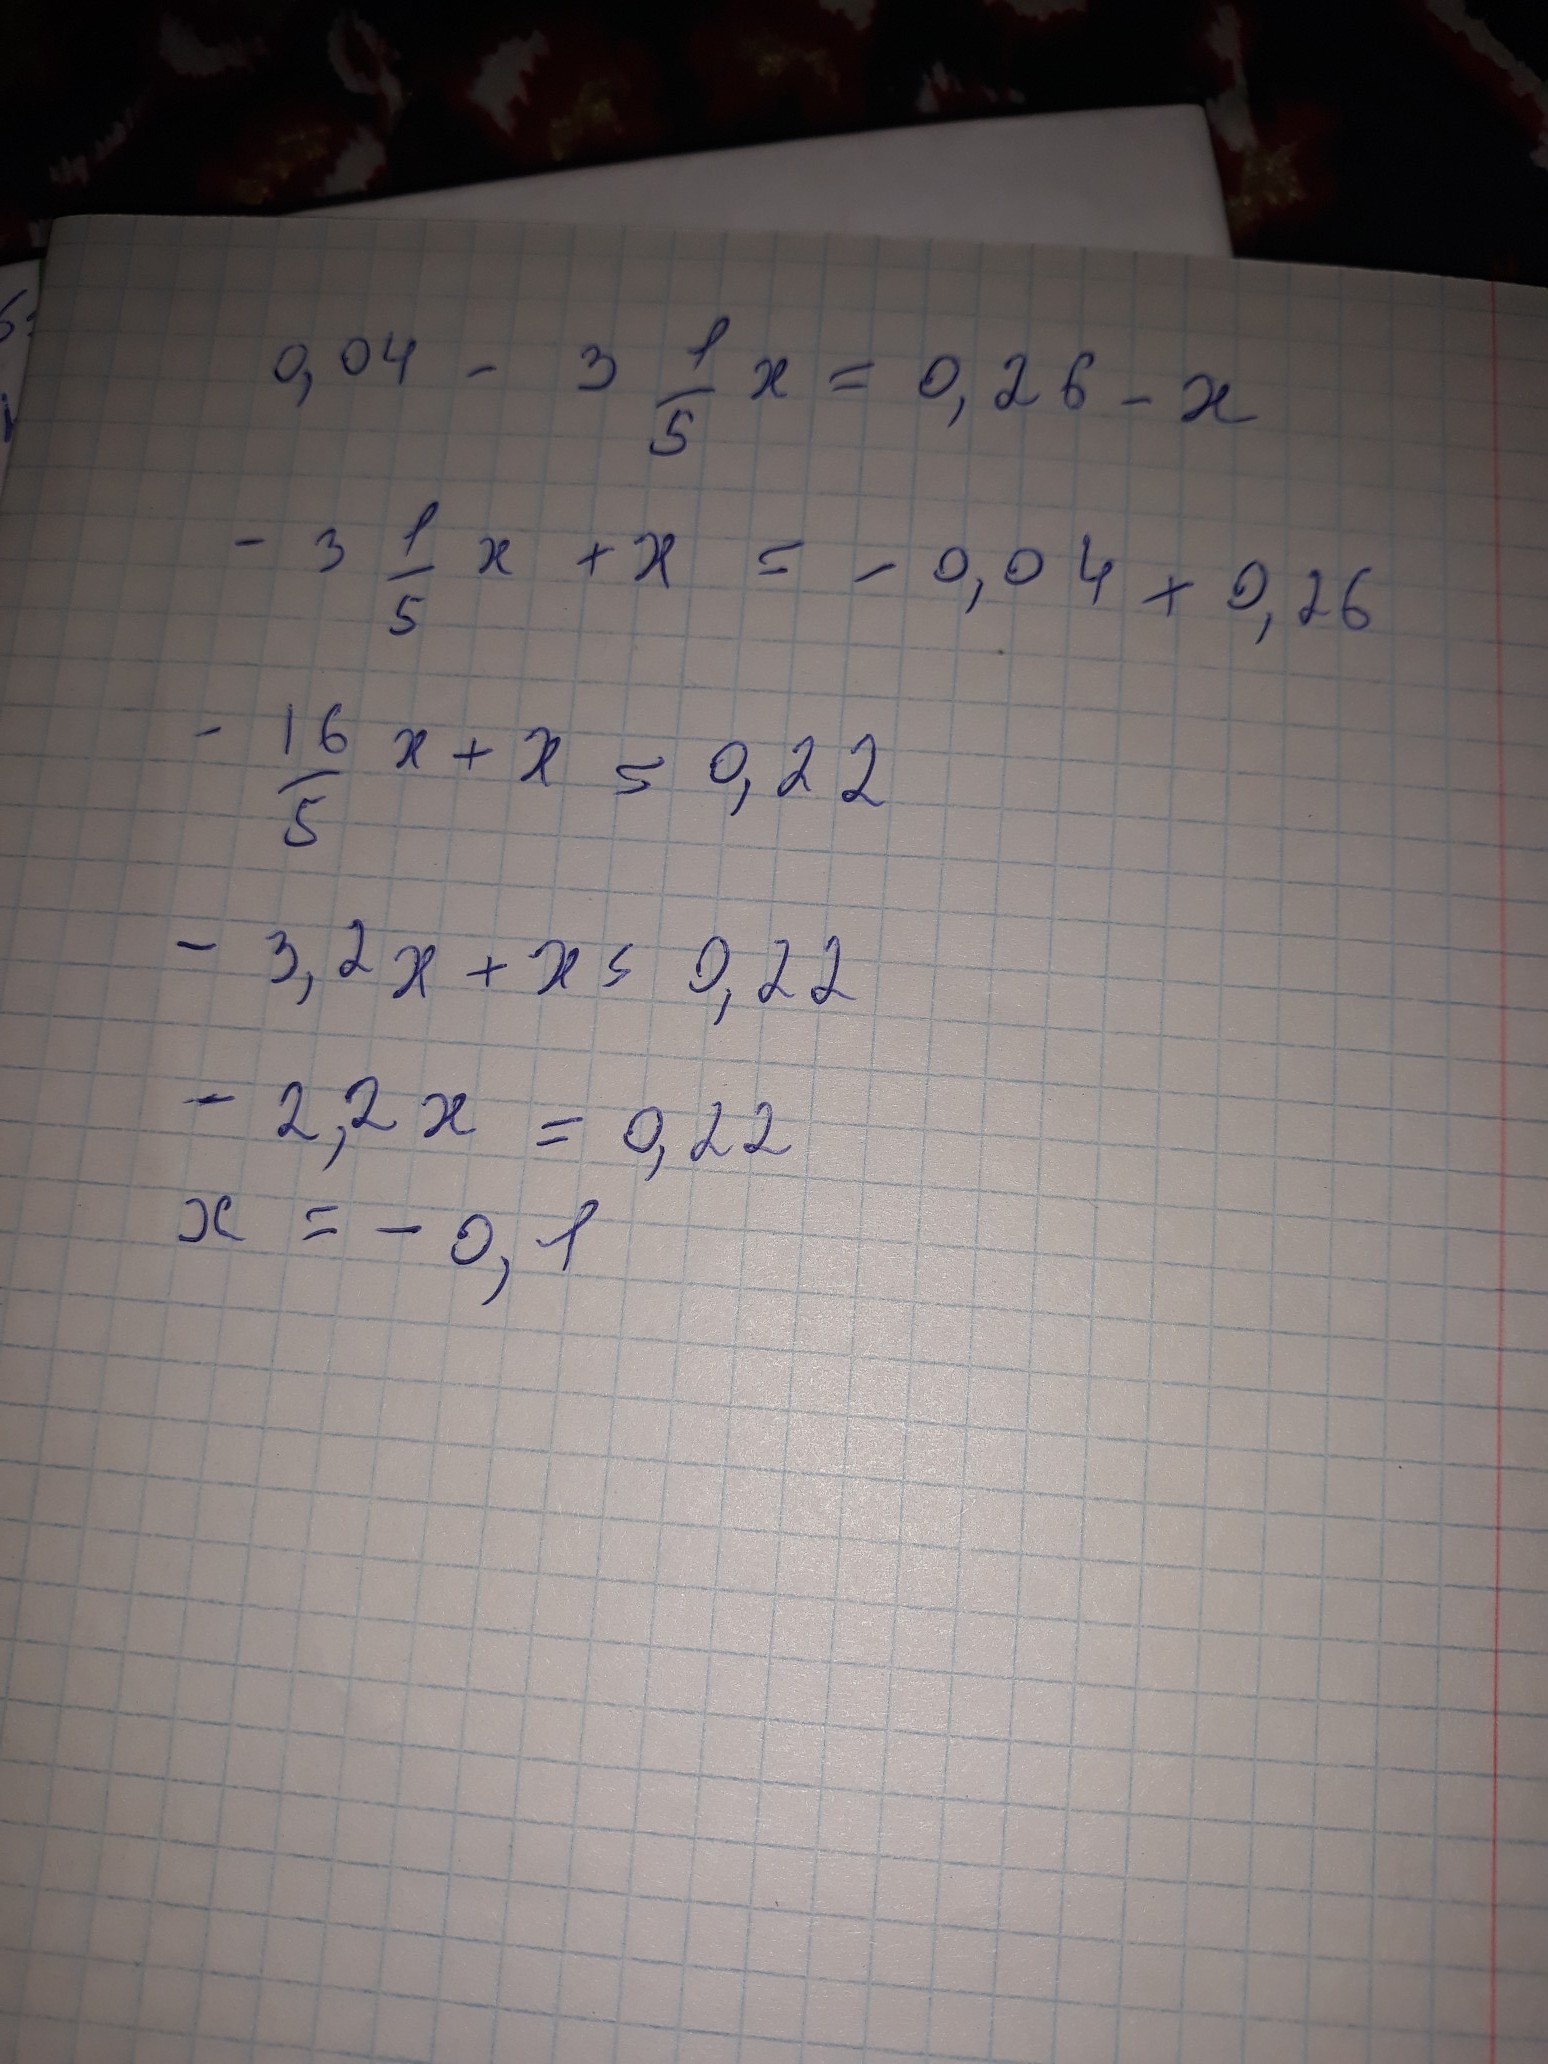 0,04 - 3 1/5 x = 0,26 - x
- 3 1/5 x + x = - 0,04 + 0,26
- 16/5 x + x = 0,22
- 3,2x + x = 0,22
- 2,2x = 0,22
x = - 0,1